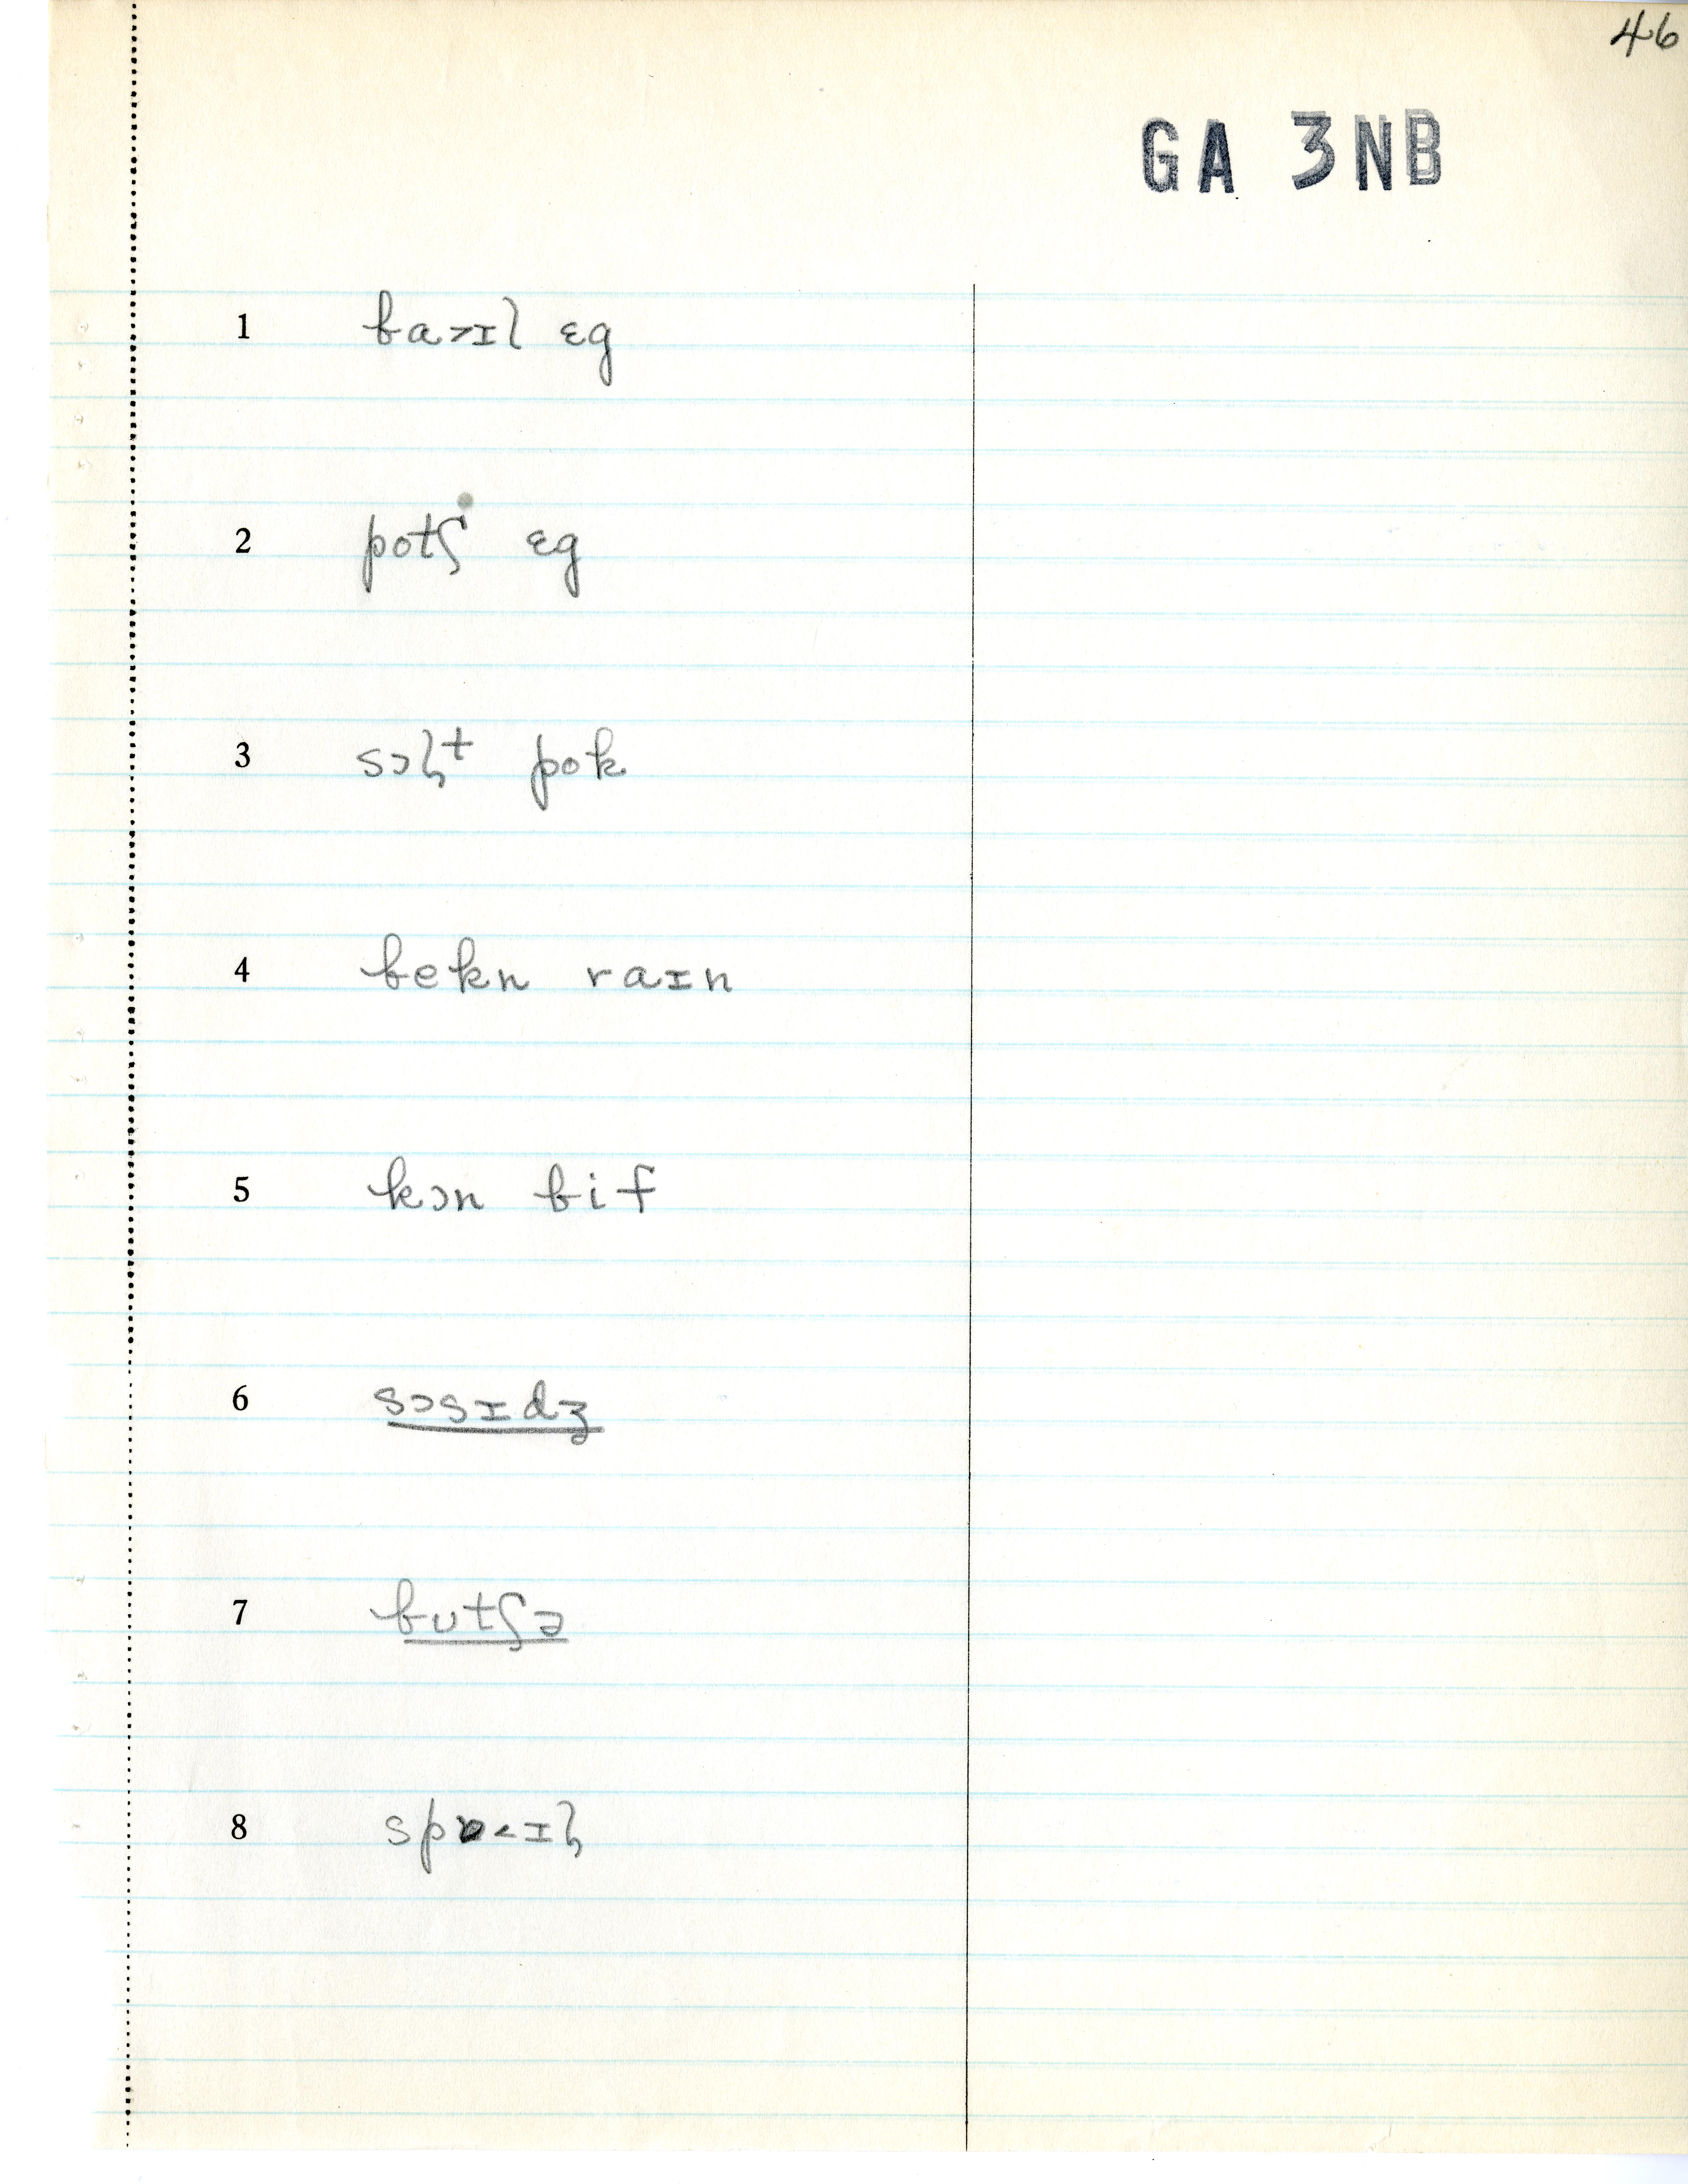 46
GA 3NB
1 ba˃ɪl ɛg
2 potʃ ɛg
3 sɔl̡ᵗ pok
4 bekn raɪn
5 kɔn bif
6 sɔsɪdʒ
7 bʊtʃə
8 spɒ˂ɪl̡